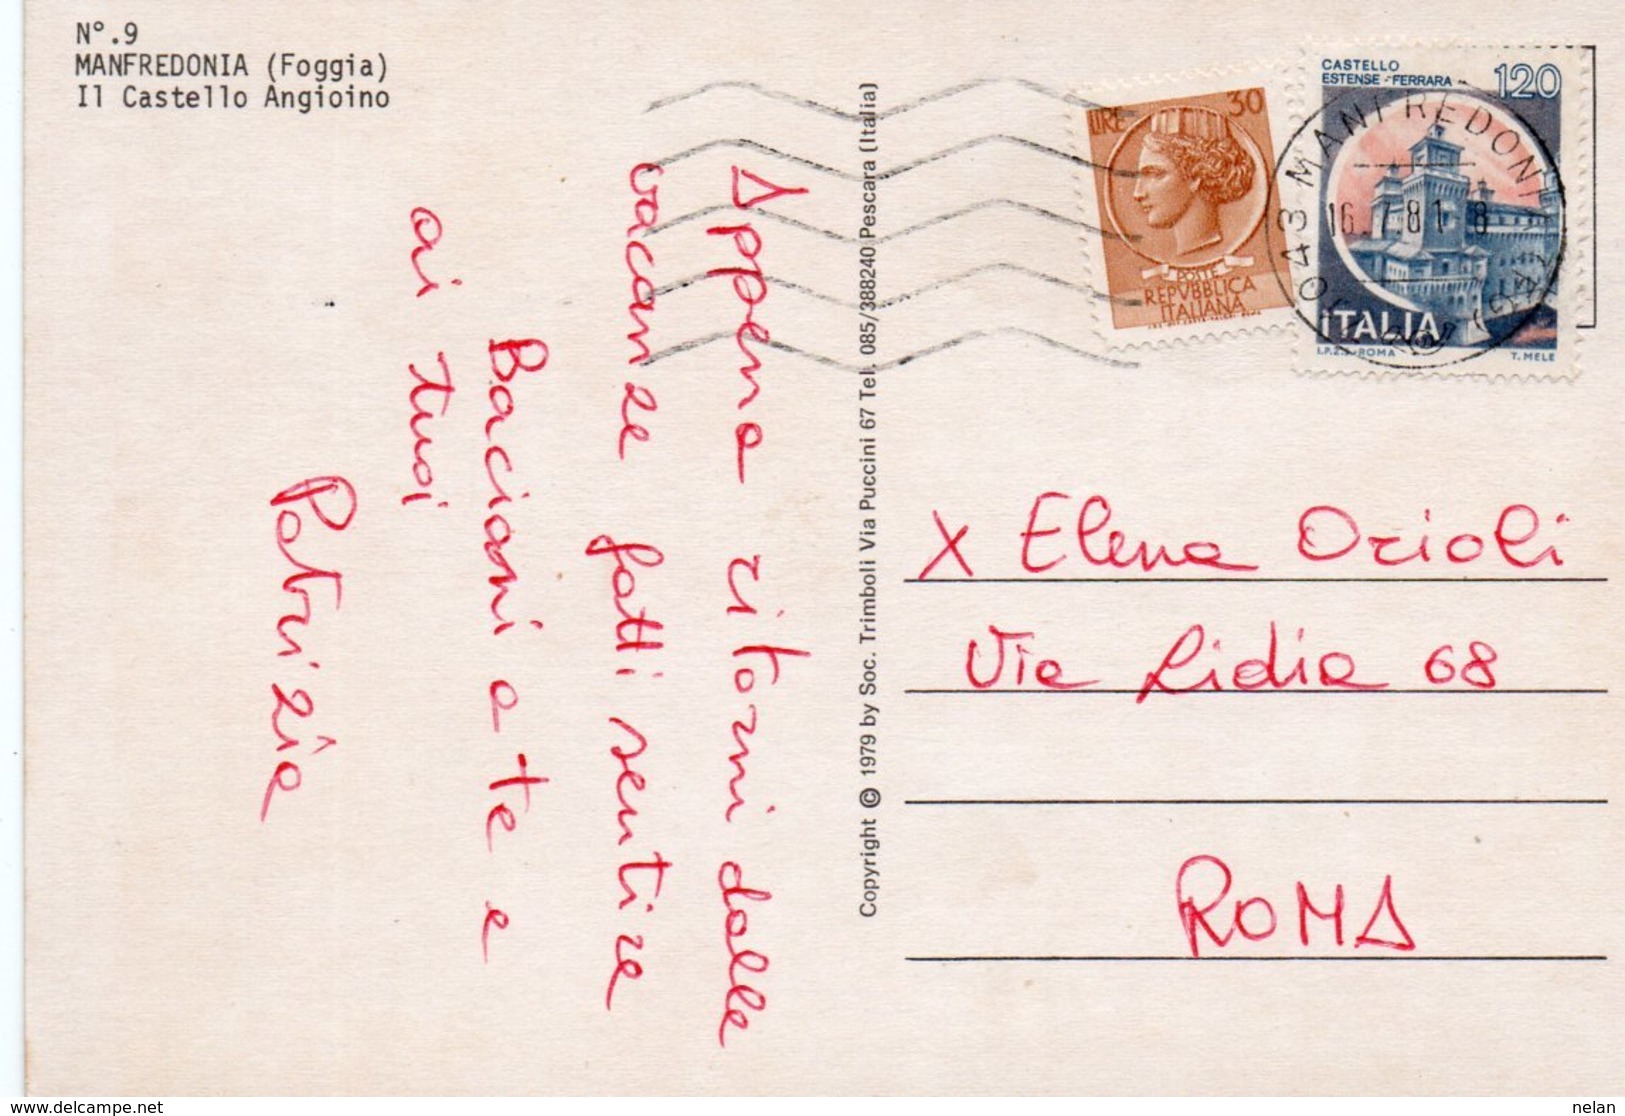 N°.9
MANFREDONIA (Foggia)
Il Castello Angioino
Appena ritorni dalle
vacanze fatti sentire
Bacioni a te e
ai tuoi
Patrizia
Copyright © 1979 by Soc. Trimboli Via Puccini 67 Tel. 085/388240 Pescara (Italia)
LIRE 30
POSTE
REPVBBLICA
ITALIANA
CASTELLO
ESTENSE-FERRARA 120
ITALIA
I.P.Z.S.-ROMA T. MELE
71043 MANFREDONIA
16.7.81 8
X Elena Orioli
Via Lidia 68
ROMA
www.delcampe.net
nelan